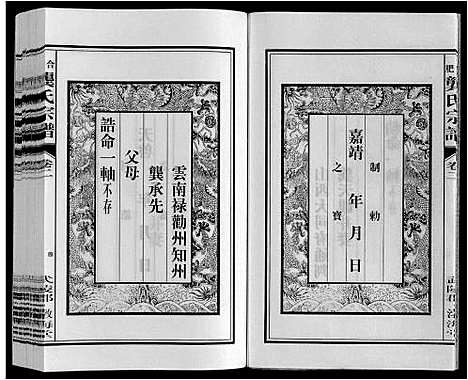 制勅
嘉靖 年月日
之寶
雲南禄勸州知州
龔承先
父母
誥命一軸不存
合
龔氏宗譜
卷二
肥
龔氏宗譜
卷二